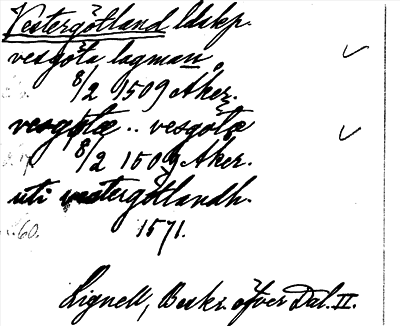 Vestergötland ldskp.
vesgöta lagman
8/2 1509 Åker.
vesgötæ .. vesgötæ
8/2 1509 Åker.
uti vestergötlandh.
1571.
Lignell, Beskr. öfver Dal. II.